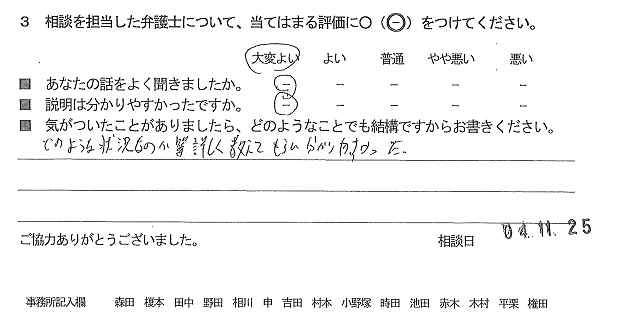 3 相談を担当した弁護士について、当てはまる評価に○（㊀）をつけてください。
大変よい よい 普通 やや悪い 悪い
■ あなたの話をよく聞きましたか。 － － － － －
■ 説明は分かりやすかったですか。 － － － － －
■ 気がついたことがありましたら、どのようなことでも結構ですからお書きください。
どのような状況なのか 詳しく教えてもらい 分かりやすかった。
ご協力ありがとうございました。 相談日 04.11.25
事務所記入欄 森田 榎本 田中 野田 相川 申 吉田 村本 小野塚 時田 池田 赤木 木村 平栗 権田